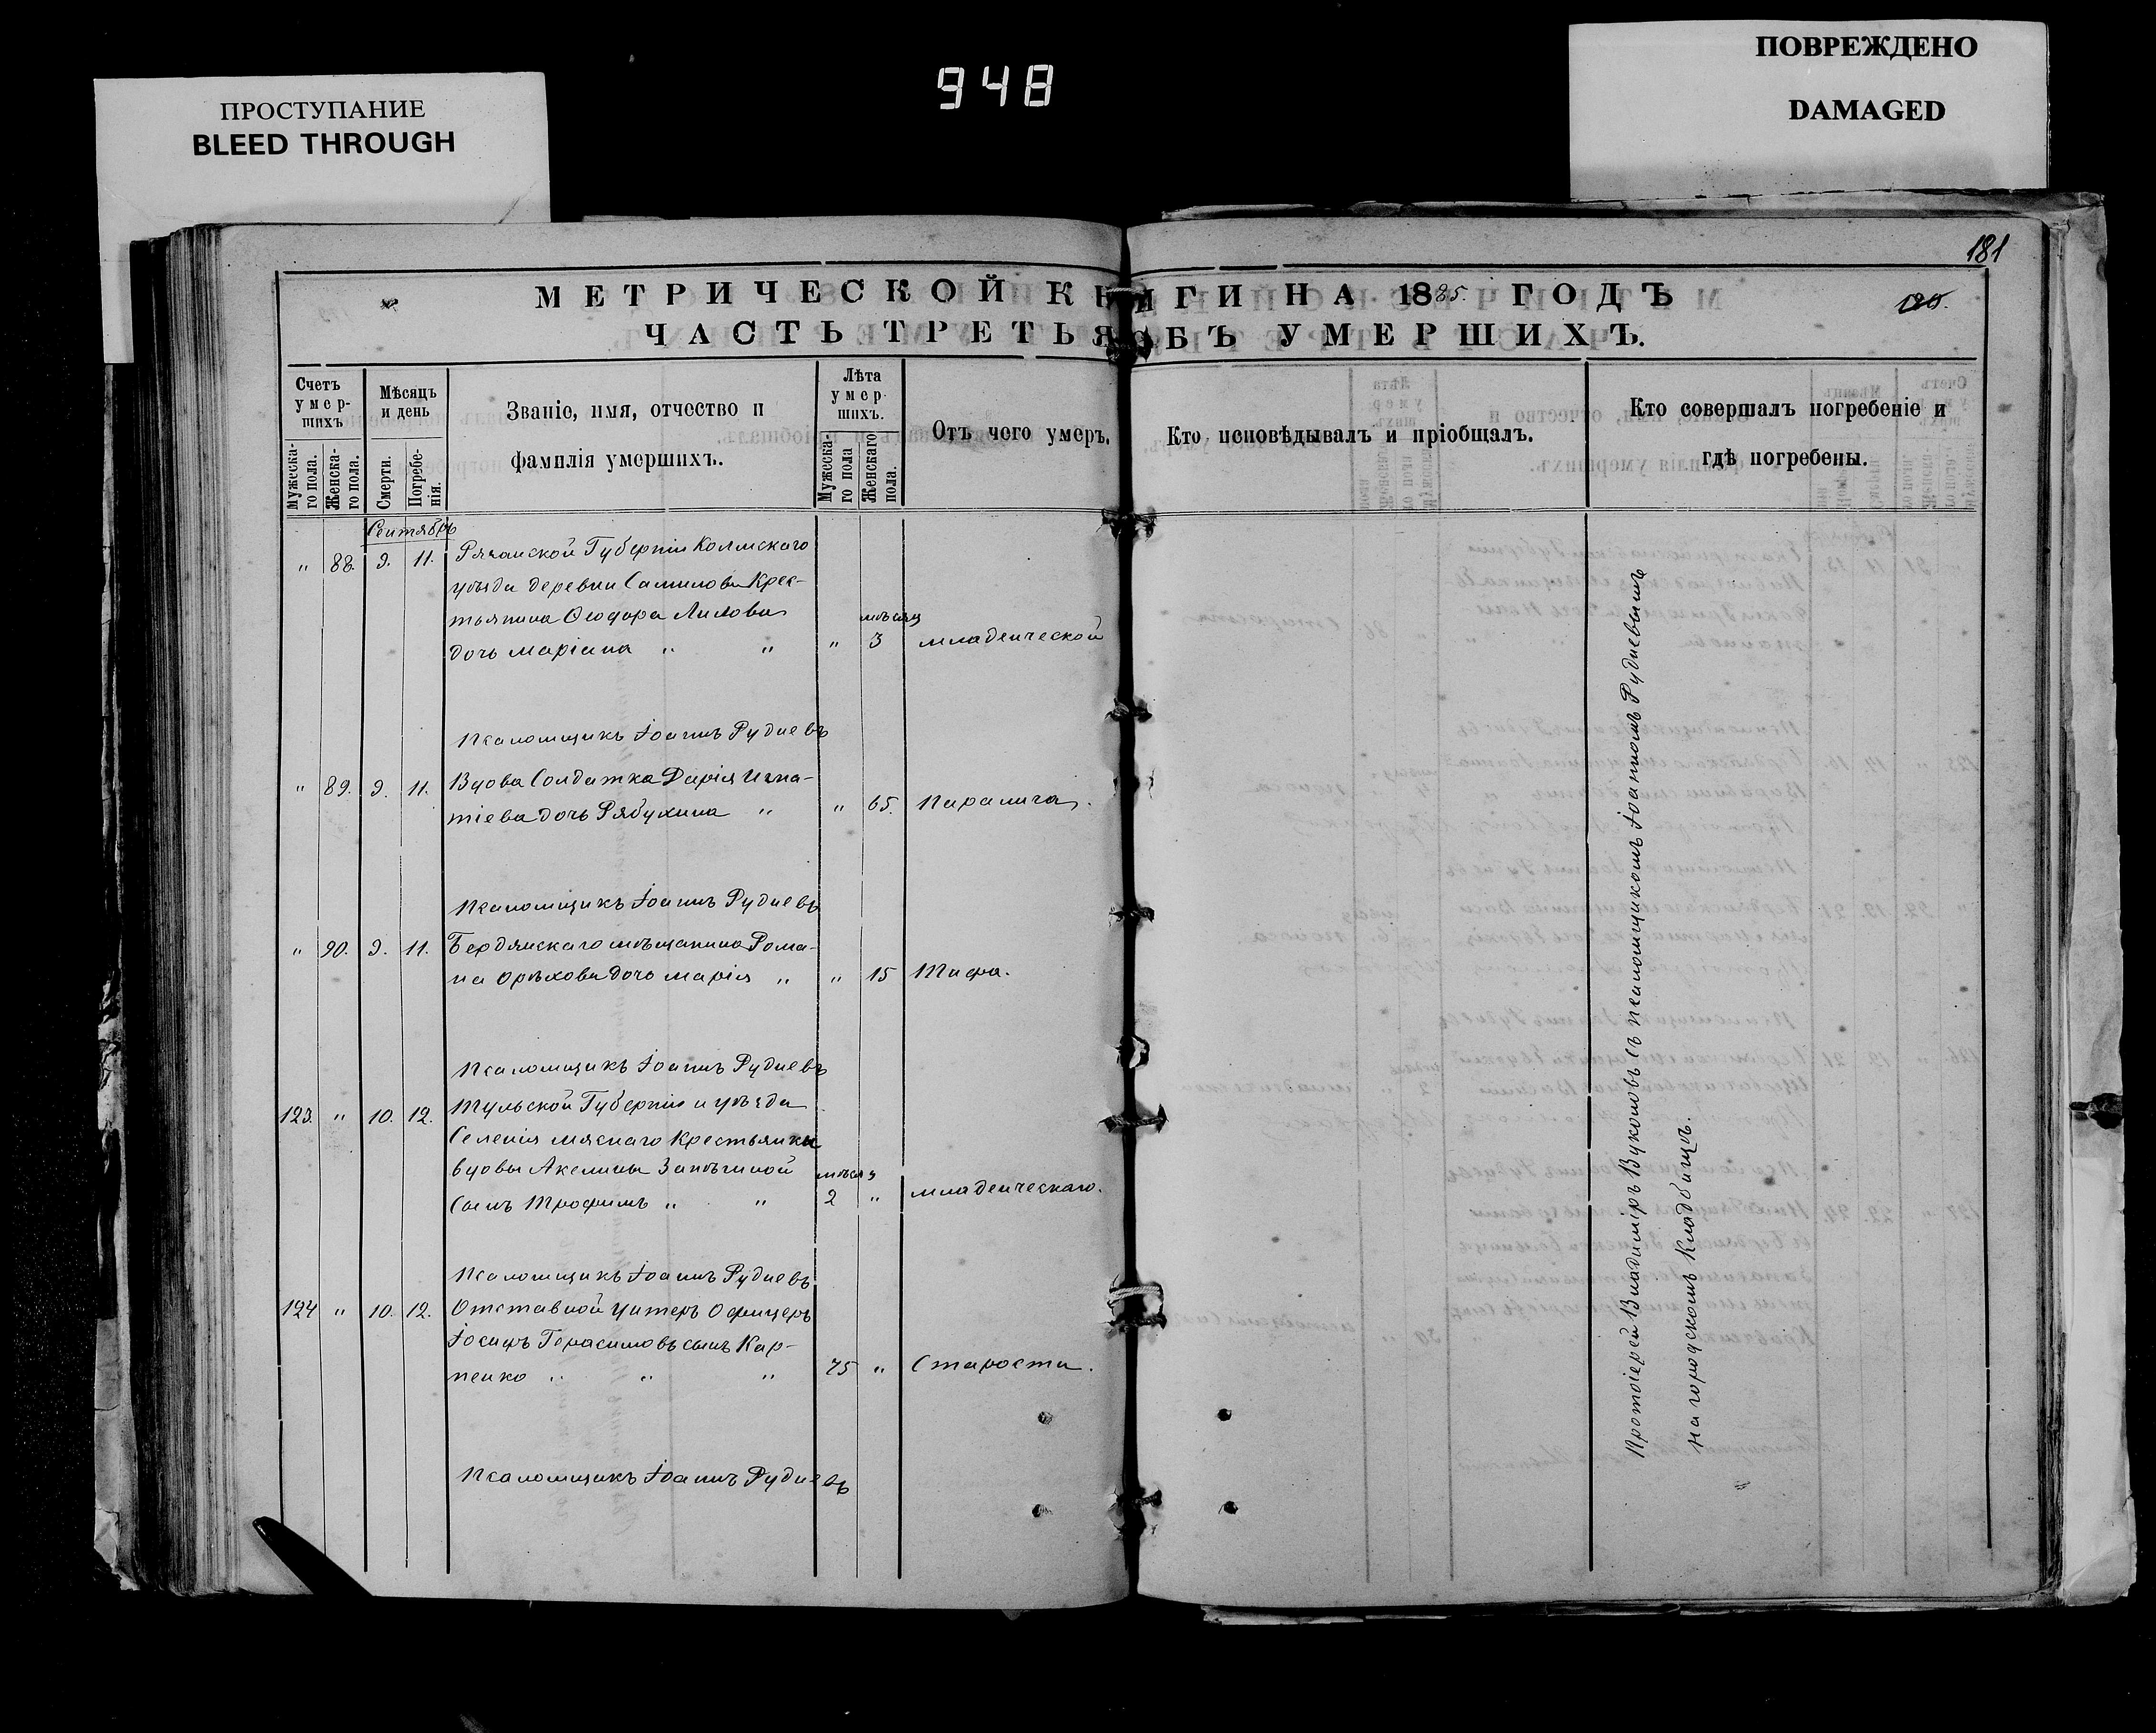 948
ПРОСТУПАНИЕ
BLEED THROUGH
ПОВРЕЖДЕНО
DAMAGED
181
МЕТРИЧЕСКОЙ КНИГИ НА 1885. ГОДЪ
ЧАСТЬ ТРЕТЬЯ ОБЪ УМЕРШИХЪ.
Счетъ умер-шихъ
Мужеска-го пола.
Женска-го пола.
Мѣсяцъ и день
Смерти.
Погребе-нія.
Званіе, имя, отчество и
фамилія умершихъ.
Лѣта умер-шихъ.
Мужеска-го пола
Женскаго пола.
Отъ чего умеръ.
Кто исповѣдывалъ и пріобщалъ.
Кто совершалъ погребеніе и
гдѣ погребены.
Сентябрь
" 88. 9. 11. Рязанской Губерніи
уѣзда деревни Крес-
тьянина Ѳеодора
дочь Маріана " " " мѣсяц 3 младенческой
Псаломщикъ Іоаннъ Рудневъ
" 89. 9. 11. Вдова Солдатка Дарія Игна-
тіева дочь Рябухина " " 65. Паралича.
Псаломщикъ Іоаннъ Рудневъ
" 90. 9. 11. Бердянскаго мѣщанина Рома-
на Орѣхова дочь Марія " " 15 Тифа.
Псаломщикъ Іоаннъ Рудневъ
123. " 10. 12. Тульской Губерніи и уѣзда
Селенія Мяснаго Крестьянки
вдовы Акелины
сынъ Трофимъ " " мѣсяц 2 " младенческаго.
Псаломщикъ Іоаннъ Рудневъ
124 " 10. 12. Отставной Унтеръ Офицеръ
Іосифъ Герасимовъ сынъ Кар-
пенко " " " 75 " Старости.
Псаломщикъ Іоаннъ Рудневъ
Протоіерей Владиміръ Вуколовъ съ псаломщикомъ Іоанномъ Рудневымъ
на городскомъ Кладбищѣ.